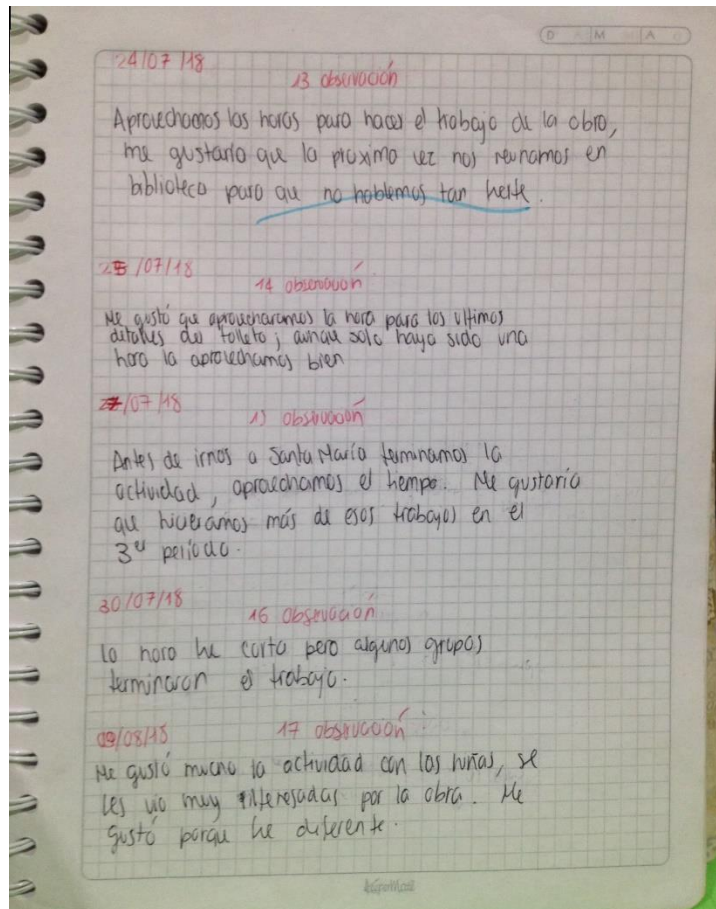 D M A
24/07/18
13 observación
Aprovechamos las horas para hacer el trabajo de la obra,
me gustaría que la proximo vez nos reunamos en
biblioteca para que no hablemos tan
25/07/18
14 observación
Me gustó que aprovecharamos la hora para los ultimos
detalles del folleto; aunque solo haya sido una
hora la aprovechamos bien
27/07/18
15 observación
Antes de irnos a Santa María terminamos la
actividad, aprovechamos el tiempo. Me gustaría
que hicieramos más de esos trabajos en el
3er período.
30/07/18
16 observación
la hora fue corta pero algunos grupos
terminaron el trabajo.
09/08/18
17 observación
Me gustó mucho la actividad con las niñas, se
les vio muy interesadas por la obra. Me
gustó porque fue diferente.